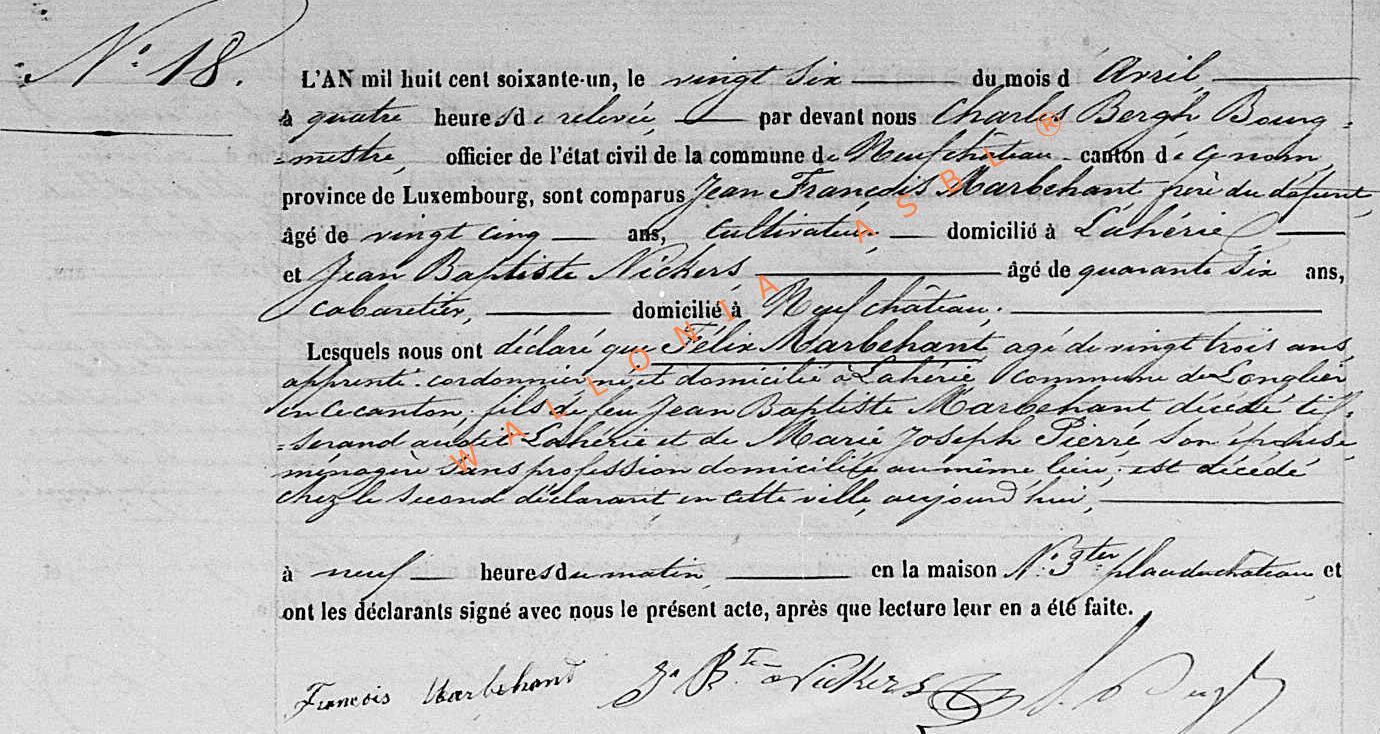 N° 18.
L'AN mil huit cent soixante-un, le vingt six du mois d'Avril,
à quatre heures de relevée, par devant nous Charles Bergh Bourg-
-mestre, officier de l'état civil de la commune de Neufchâteau canton de ce nom,
province de Luxembourg, sont comparus Jean François Marbehant frère du défunt,
âgé de vingt cinq ans, cultivateur, domicilié à Lahérie,
et Jean Baptiste Nickers âgé de quarante six ans,
cabaretier, domicilié à Neufchâteau.
Lesquels nous ont déclaré que Félix Marbehant, agé de vingt trois ans
apprenti-cordonnier né et domicilié à Lahérie commune de Longlier
en ce canton, fils de feu Jean Baptiste Marbehant décédé tis-
-serand audit Lahérie et de Marie Joseph Pierré son épouse
ménagère sans profession domiciliée au même lieu, est décédé
chez le second déclarant, en cette ville, aujourd'hui,
à neuf heures du matin, en la maison N° 3ter place du chateau, et
ont les déclarants signé avec nous le présent acte, après que lecture leur en a été faite.
François Marbehant J. Bte Nickers
WALLONIA ASBL ®